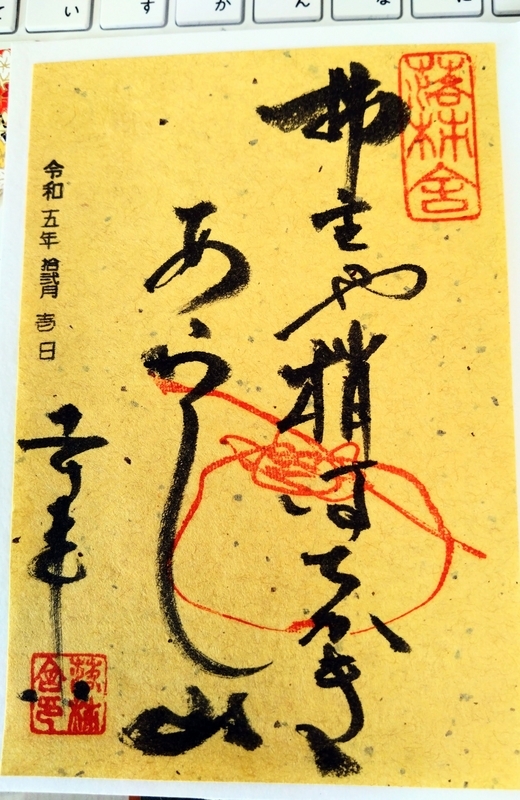 て い す か ん な に
落柿舎
柿主や梢はちかき
あらし山
令和五年 拾弐月 壱日
落柿舎印